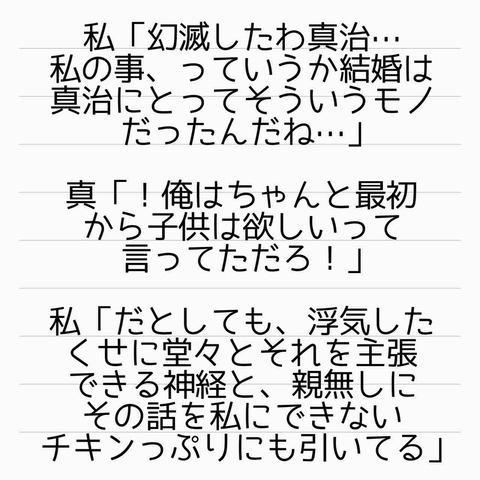 私「幻滅したわ真治…
私の事、っていうか結婚は
真治にとってそういうモノ
だったんだね…」
真「！俺はちゃんと最初
から子供は欲しいって
言ってただろ！」
私「だとしても、浮気した
くせに堂々とそれを主張
できる神経と、親無しに
その話を私にできない
チキンっぷりにも引いてる」